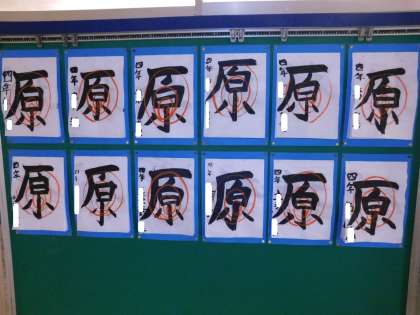 四年 原
四年 原
四年 原
四年 原
四年 原
四年 原
四年 原
四年 原
四年 原
四年 原
四年 原
四年 原